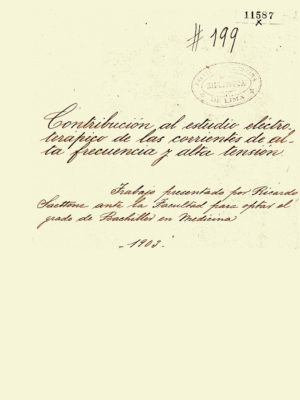 11587
x
# 199
BIBLIOTECA
DE LIMA
Contribución al estudio electro-
terápico de las corrientes de al-
ta frecuencia y alta tensión
Trabajo presentado por Ricardo
ante la Facultad para optar el
grado de Bachiller en Medicina
-1903-